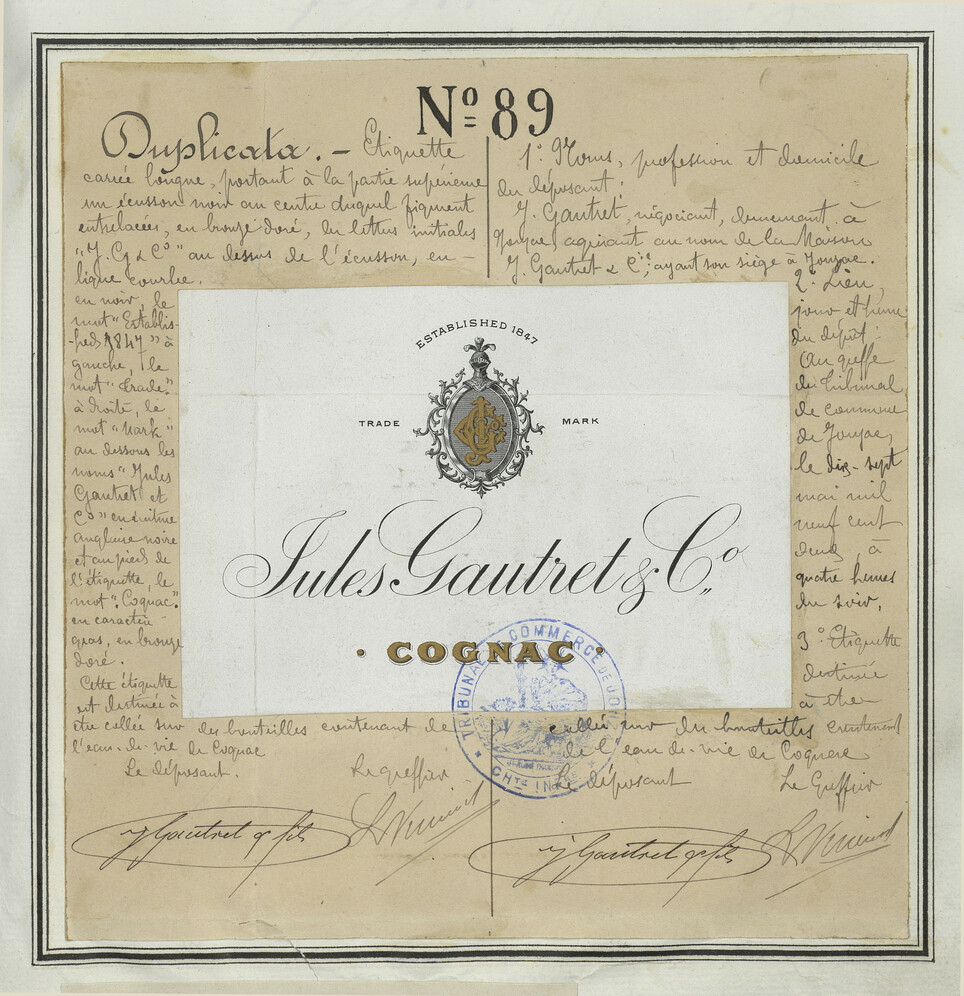 Nº 89
Duplicata. – Etiquette
carrée longue, portant à la partie supérieure
un écusson noir au centre duquel figurent
entrelacées, en bronze doré, les lettres initiales
"J. G & Cº" au dessus de l'écusson, en –
ligne courbe.
en noir, le
mot "Establis-
-hed 1847" à
gauche, le
mot "Trade"
à droite, le
mot "Mark"
au dessous les
noms "Jules
Gautret et
Cº" en écriture
anglaise noire
et au pied de
l'étiquette, le
mot "Cognac"
en caractères
gras, en bronze
doré.
Cette étiquette
est destinée à
être collée sur des bouteilles contenant de
l'eau-de-vie de Cognac
Le déposant. Le greffier
J Gautret & fils
1º Noms, profession et domicile
du déposant:
J. Gautret, négociant, demeurant à
Jonzac, agissant au nom de la Maison
J. Gautret & Cie, ayant son siège à Jonzac.
2º Lieu,
jour et heure
du dépôt:
Au greffe
du Tribunal
de commerce
de Jonzac,
le dix-sept
mai mil
neuf cent
deux, à
quatre heures
du soir,
3º Etiquette
destinée
à être
collée sur des bouteilles contenant
de l'eau-de-vie de Cognac
Le déposant Le Greffier
J Gautret & fils
ESTABLISHED 1847
TRADE MARK
Jules Gautret & Cº
· COGNAC ·
TRIBUNAL DE COMMERCE DE JONZAC
CHTE INFRE